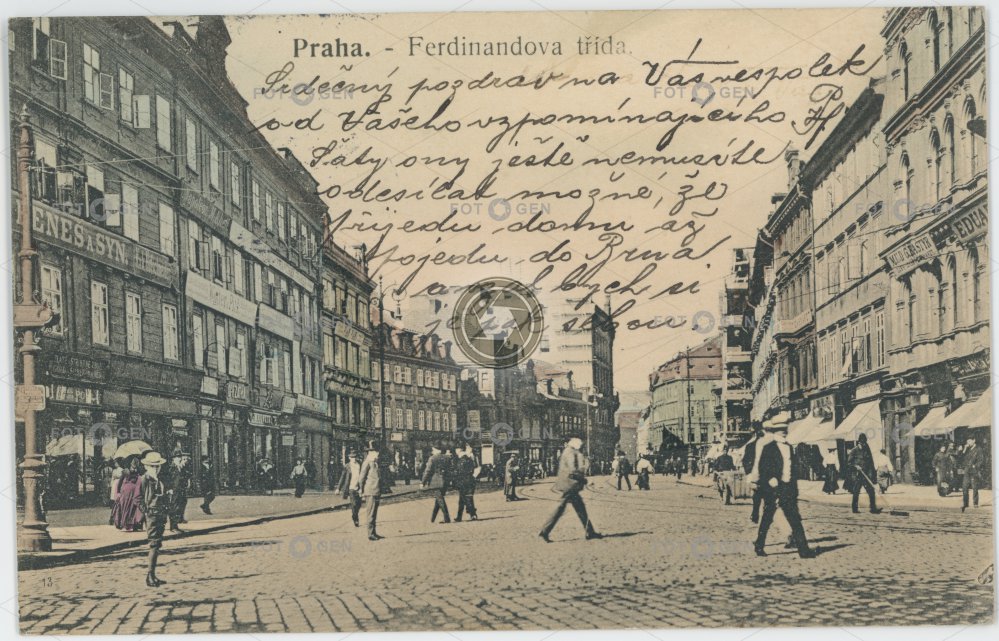 Praha. - Ferdinandova třída.
Srdečný pozdrav na Vás vespolek
od Vašeho vzpomínajícího
Šaty ony ještě nemusíte
odesílat možné, že
přijedu domu až
pojedu do Brna
a vzal bych si
je pak sebou
ENEŠ A SYN
EDUA
13
FOTOGEN